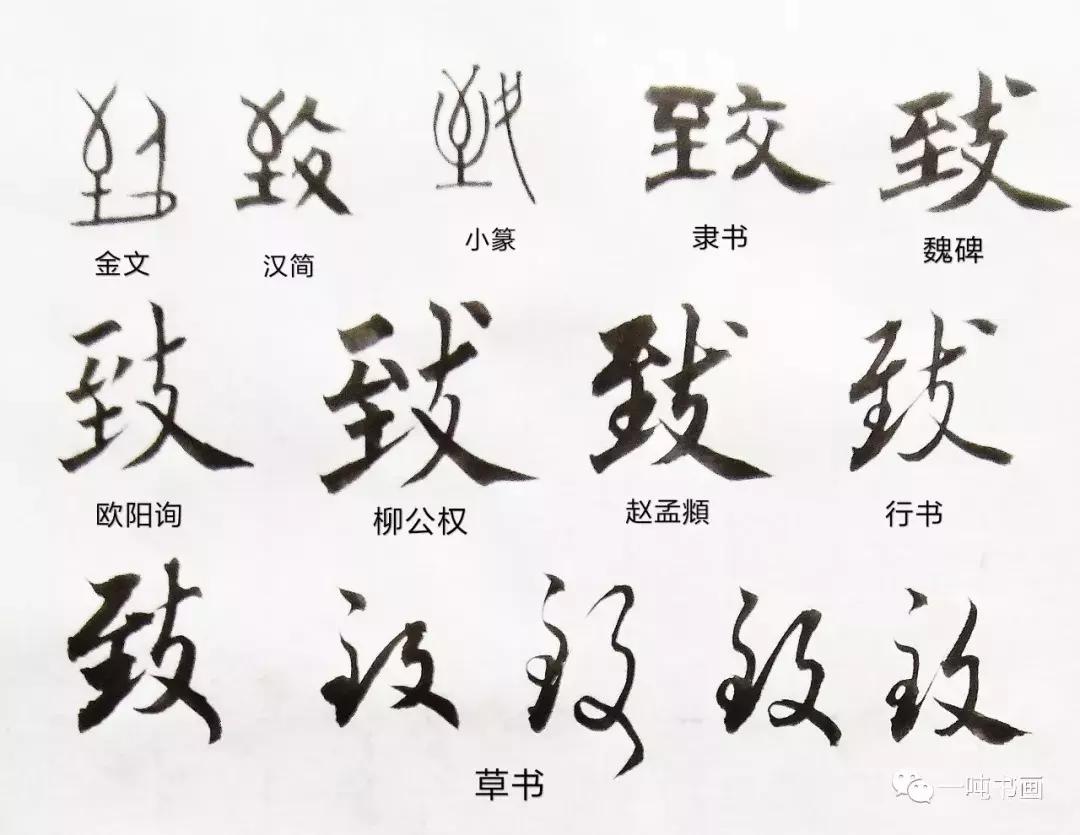 致 致 致 致 致
金文 汉简 小篆 隶书 魏碑
致 致 致 致
欧阳询 柳公权 赵孟頫 行书
致 致 致 致 致
草书
一吨书画